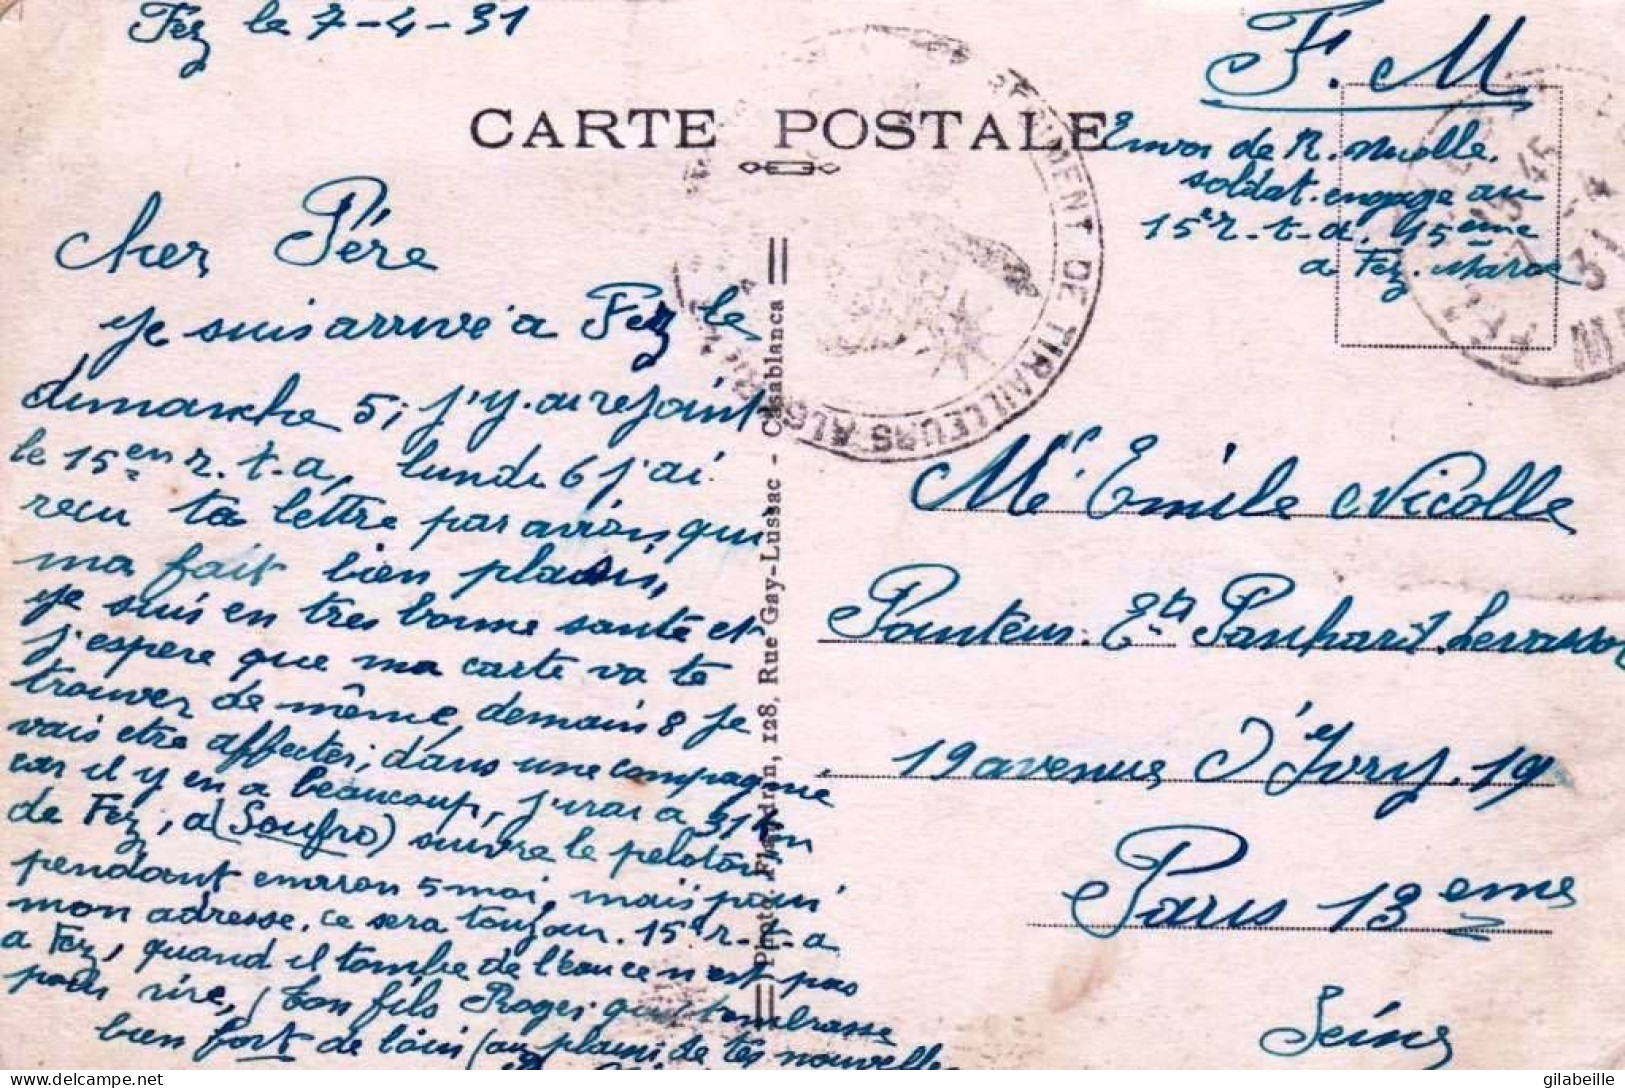 Fez le 7-4-31
F.M
CARTE POSTALE
Envoi de R. Nicolle.
soldat engagé au
15e r-t-a. 15eme
a Fez. Maroc
REGIMENT DE TIRAILLEURS ALG
13 45
7 -4
31
FEZ
cher Père
je suis arrivé a Fez le
dimanche 5; j'y. ai rejoint
le 15em r. t-a, lundi 6 j'ai
reçu ta lettre par avion, qui
ma fait bien plaisir,
je suis en tres bonne santé et
j'espere que ma carte va te
trouver de même, demain 8 je
vais etre affecter; dans une compagnie
car il y en a beaucoup, j'irai a 31 km
de Fez, a (Soufro) suivre le peloton
pendant environ 5 moi, mais pour
mon adresse. ce sera toujour. 15e r-t-a
a Fez, quand il tombe de l'eau ce n'est pas
pour rire, ton fils Roger qui t'embrasse
bien fort de loin (au plaisir de tes nouvelles
Photo. Flandrin, 128, Rue Gay-Lussac - Casablanca
Mr Emile Nicolle
Pointeur. Ets Panhard. Levassor
19 avenue d'Ivry. 19
Paris 13eme
Seine
gilabeille